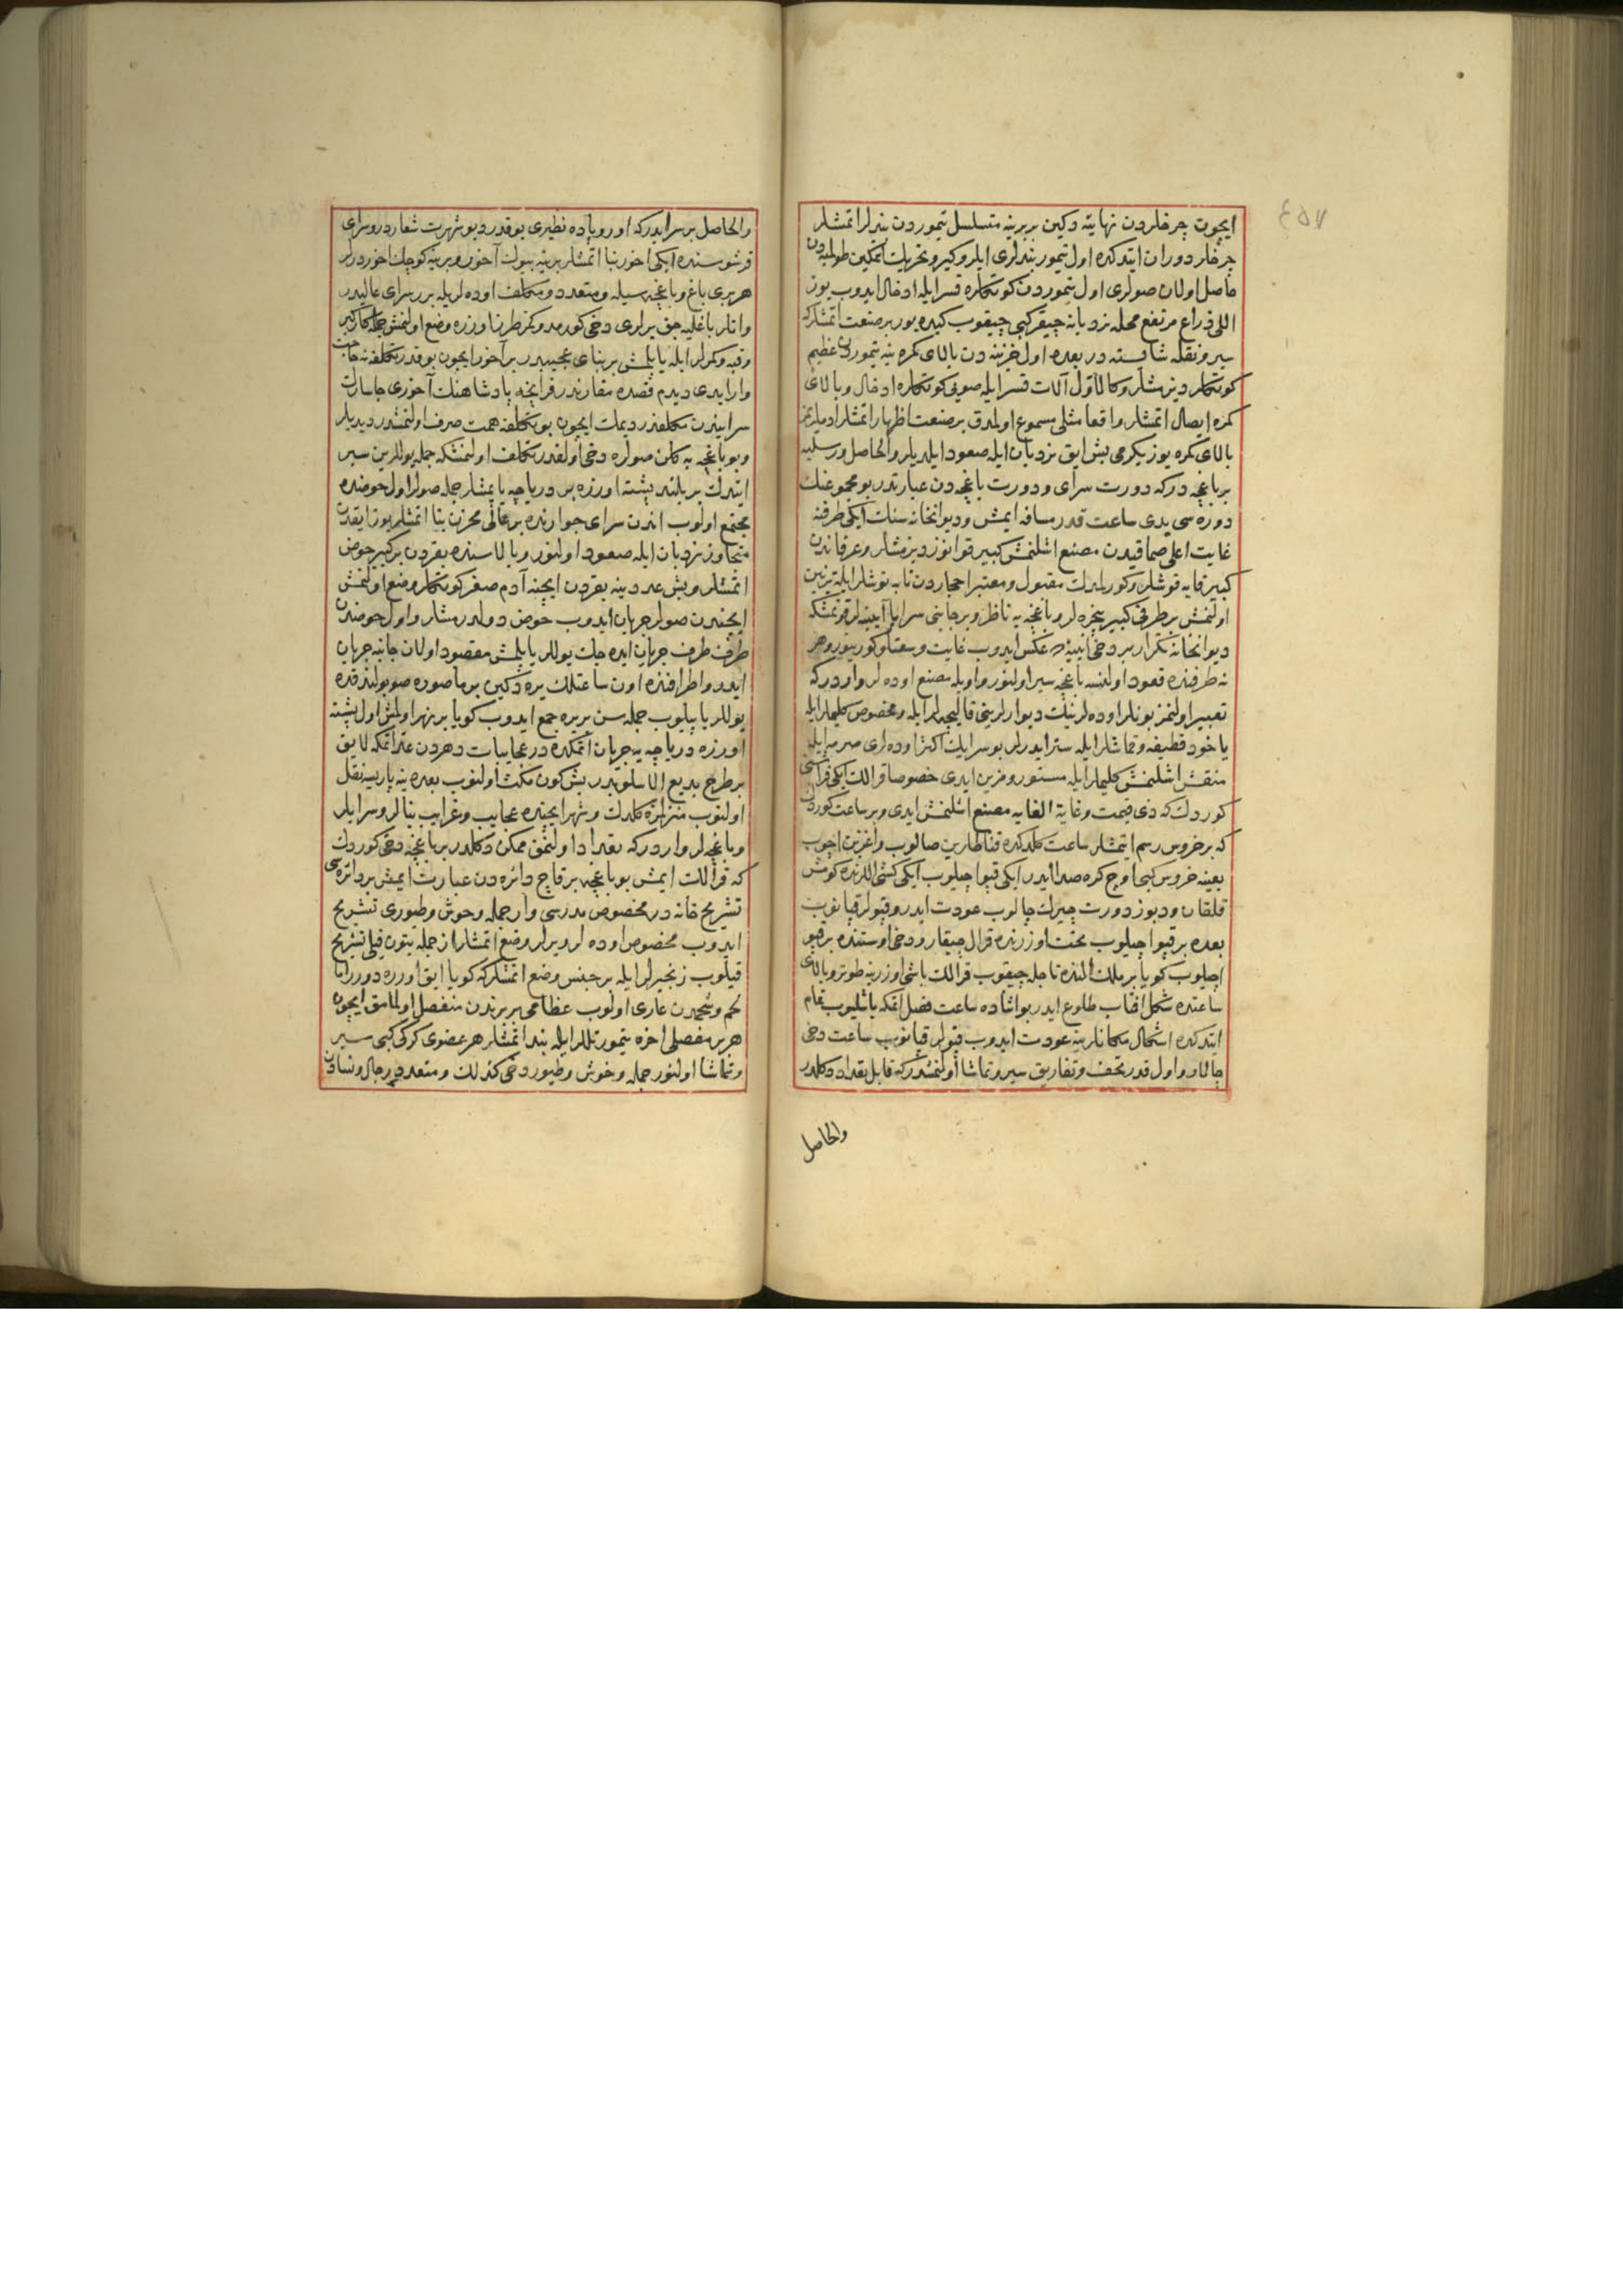 ایچون چرخلردن نهایته دکین بربرینه متسلسل تیموردن بندلر اتمشلر
چرخلر دوران ایتدکده اول تیمور بندلری ایلرو کیرو تحریك اتمکین طولمبه‌دن
حاصل اولان صولری اول تیموردن کونکلره قسرایله ادخال ایدوب یوز
اللی ذراع مرتفع محله نردبانه چیقر کبی چیقوب کیده‌یور بر صنعت اتمشلرکه
سیر و نقله شایسته در بعده اول خزینه‌دن بالای کمره ینه تیموردن عظیم
کونکلر دیزمشلر و کالاول آلات قسرایله صویی کونکلره ادخال و بالای
کمره ایصال اتمشلر واقعا مثلی مسموع اولمدق بر صنعت اظهار اتمشلر
بالای کمره یوز یکرمی بش ایق نردبان ایله صعود ایلدیلر والحاصل ورسلیه
بر باغچه درکه دورت سرای و دورت باغچه‌دن عبارتدر بو مجموعنك
دوره‌سی یدی ساعت قدر مسافه ایمش و دیوانخانه‌سنك ایکی طرفنه
غایت اعلی صماقیدن مصنع اشلنمش کبیر قوانوز دیزمشلر و عرقاندن
کبیر قایه قوشلر و کورلمدك مقبول و معتبر احجاردن تابه نوشلر ایله تزیین
اولنمش بر طرفی کبیر پنجره‌لر و باغچه‌یه ناظر و بر جانبی سراپا آیینه‌لر قونمشکه
دیوانخانه تکرار بر دخی آیینه‌ده عکس ایدوب غایت وسعتلو کورینور و هر
نه طرفنده قعود اولنسه باغچه سیر اولنور و اویله مصنع اوده‌لر واردرکه
تعبیر اولنمز بونلر اوده‌لرینك دیوارلرینی قالیچه‌لر ایله و مخصوص کلیملر ایله
یاخود قطیفه و قماشلر ایله ستر ایدرلر بو سرایك اکثر اوده‌لری صرمه ایله
منقش اشلنمش کلیملر ایله مستور و مزین ایدی خصوصا قرالك ایکی
کوردك که ذی قیمت و غایة الغایه مصنع اشلنمش ایدی و بر ساعت کوردك
که بر خروس رسم ایتمشلر ساعت کلدکده قنادلرین صالوب و اغزین اچوب
بعینه خروس کبی اوچ کره صدا ایدر ایکی قپو اچیلوب ایکی کشی اللرنده کومش
قلقان و دبوز دورت چیرك چالوب عودت ایدر و قپولر قپانوب
بعده بر قپو اچیلوب تخت اوزرنده قرال چیقار و دخی اوستنده بر قپو
اچیلوب کویا بر ملك النده تاجله چیقوب قرالك باشی اوزرینه طوتر و بالای
ساعتده شکل آفتاب طلوع ایدر بو اثناده ساعت فصل اتمکه باشلیوب تمام
ایتدکده اشکال مکانلرینه عودت ایدوب قپولر قپانوب ساعت دخی
چالار و اول قدر تحف و تفاریق سیر و تماشا اولنمشدرکه قابل تعداد دکلدر
والحاصل
والحاصل بر سرایدرکه اوروپاده نظیری یوقدر دیو شهرت شعاردر و سرای
قرشوسنده ایکی اخور بنا اتمشلر برینه بیوك آخور و برینه کوچك اخور دیرلر
هر بری باغ و باغچه‌سیله و متعدد و متکلف اوده‌لریله بر سرای عالیدر
و اتلر باغلیه‌جق یرلری دخی کورمدوکمز طرنا اوزره وضع اولنمش جمله کارکیر
و قبه و کمرلر ایله یاپلمش بر بنای عجیبدر بر آخور ایچون بو قدر تکلفه نه حاجت
وار ایدی دیدم قصده مقارندر فرانچه پادشاهنك آخوری چاسارك
سراییندن متکلفدر دیمك ایچون بو تکلفه همت صرف اولنمشدر دیدیلر
و بو باغچه‌یه کلن صولره دخی اولقدر تکلف اولنمشکه جمله یوللرین سیر
ایتدك بر بلند پشته اوزره بر دریاچه یاپمشلر جمله صولر اول حوضده
مجتمع اولوب اندن سرای جوارنده بر عالی مخزن بنا اتمشلر یوز ایقدن
متجاوز نردبان ایله صعود اولنور و بالاسنده بقردن بر کبیر حوض
اتمشلر و بش عدد ینه بقردن ایچنه آدم صغر کونکلر وضع اولنمش
ایچندن صولر جریان ایدوب حوض دولدرمشلر و اول حوضدن
طرف طرف جریان ایده‌جك یوللر یاپلمش مقصود اولان جانبه جریان
ایدر و اطرافنده اون ساعتلك یره دکین بر ماصوره صو بولندقده
یوللر یاپیلوب جمله‌سن بر یره جمع ایدوب کویا بر نهر اولمش اول پشته
اوزره دریاچه‌یه جریان اتمکده در عجایبات دهردن عد اتمکه لایق
بر طرح بدیع الاسلوبدر بش کون مکث اولنوب بعده ینه پاریسه نقل
اولنوب منزلمزه کلدك و شهر ایچنده عجایب و غرایب بنالر و سرایلر
و باغچه‌لر واردرکه تعداد اولنمق ممکن دکلدر بر باغچه دخی کوردك
که قرالك ایمش بو باغچه بر قاچ دائره‌دن عبارت ایمش بر دائره‌سی
تشریح خانه در مخصوص مدرسی وار جمله وحوش و طیوری تشریح
ایدوب مخصوص اوده‌لر و یرلر وضع اتمشلر از جمله بتون فیلی تشریح
قیلوب زنجیرلر ایله بر جنس وضع اتمشلرکه کویا ایق اوزره دورر اما
لحم و شحمدن عاری اولوب عظامی بربرندن منفصل اولمامق ایچون
هر بر مفصلی اخره تیمور تللر ایله بند اتمشلر هر عضوی کرکی کبی سیر
و تماشا اولنور جمله وحوش و طیور دخی کذلك و متعدد رجال و نسادن